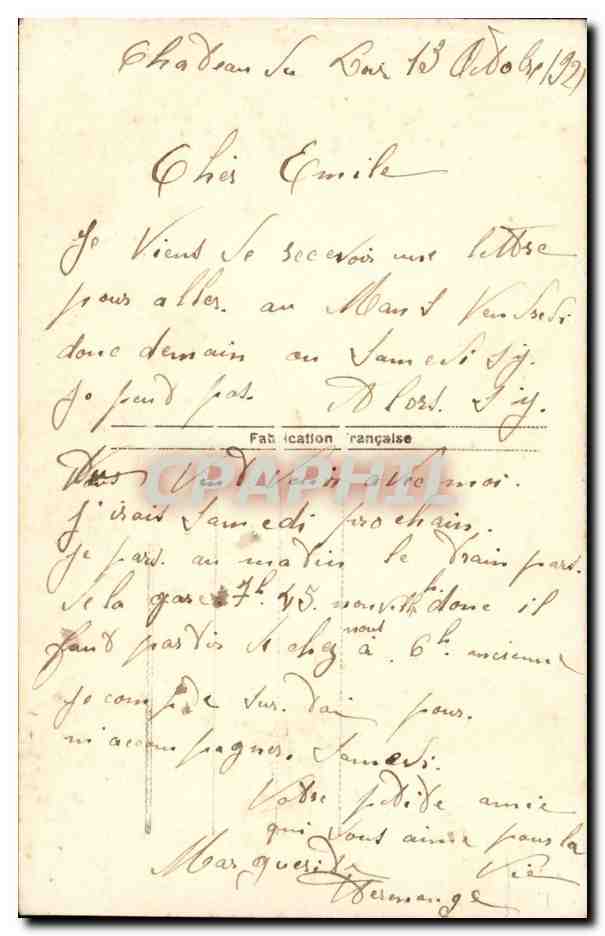 Chateau du Loir 13 Octobre 1921
Cher Emile
Je viens de recevoir une lettre
pour aller. au Mans Vendredi
donc demain ou Samedi si j'y.
je peut pas. Alors. si j'y.
Fabrication Française
CPAPHIL
tu veut venir avec moi.
j'irais Samedi prochain.
je pars. au matin le train part.
de la gare. 7h. 45. nouvelle donc il
faut partir de chez nous à 6h. ancienne
je compte sur. toi pour.
m'accompagner. Samedi.
Votre petite amie
qui vous aime pour la
Vie
Marguerite